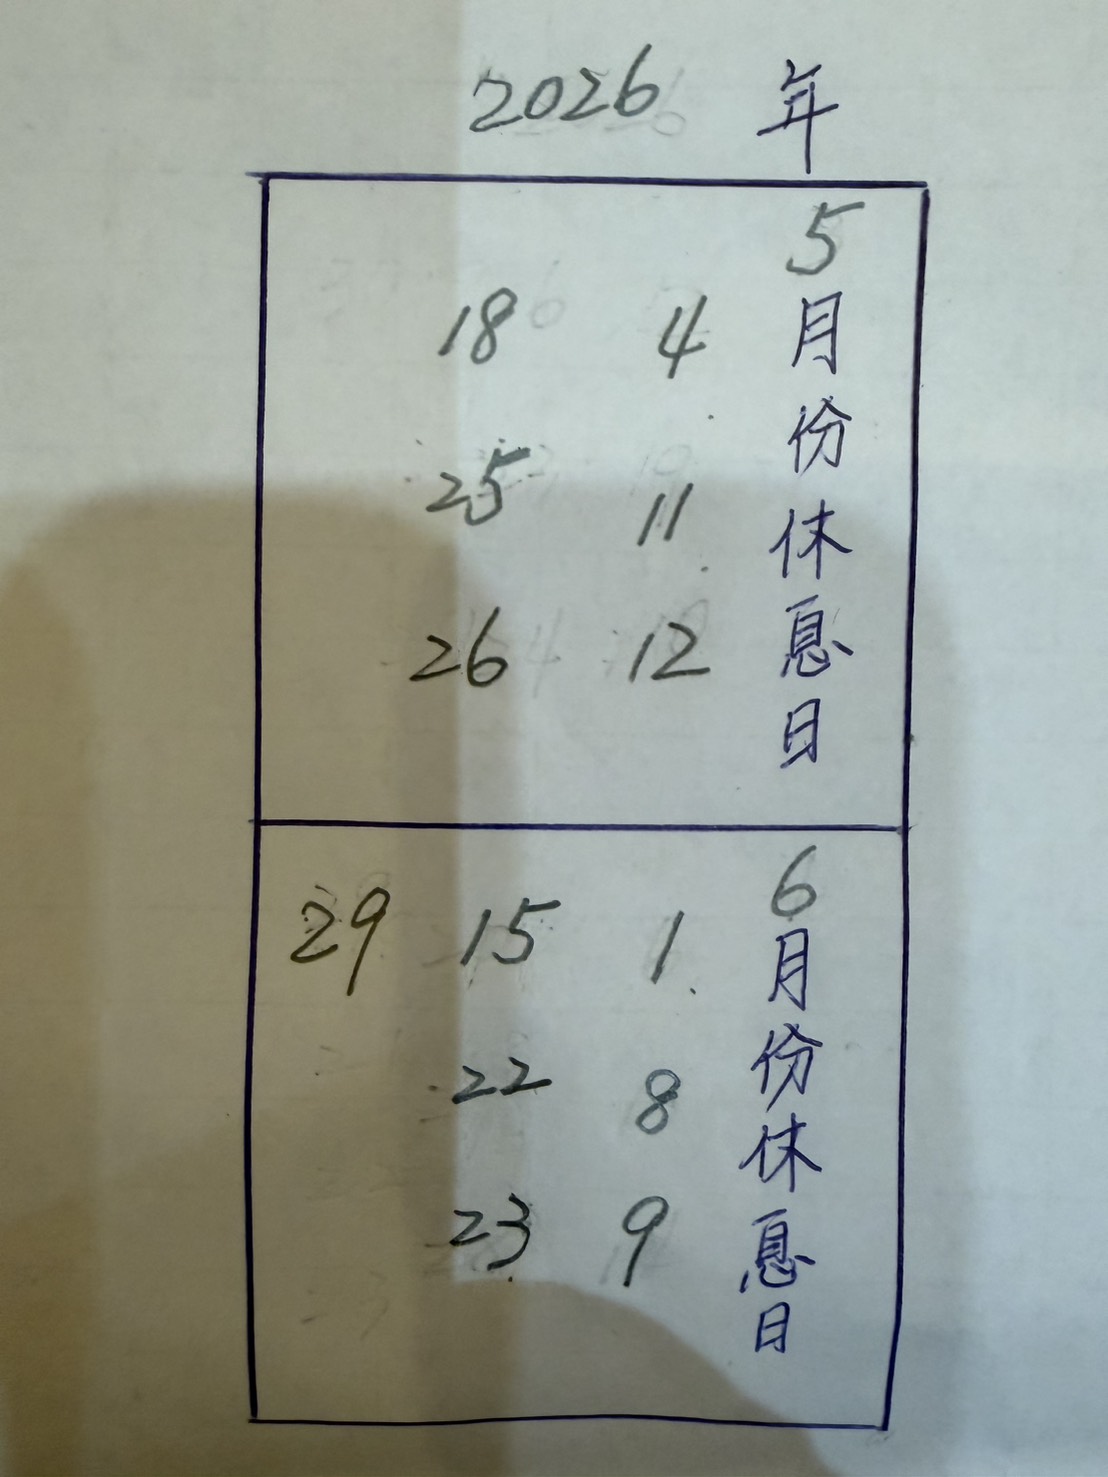 2026 年
5月份休息日
4
11
12
18
25
26
6月份休息日
1
8
9
15
22
23
29